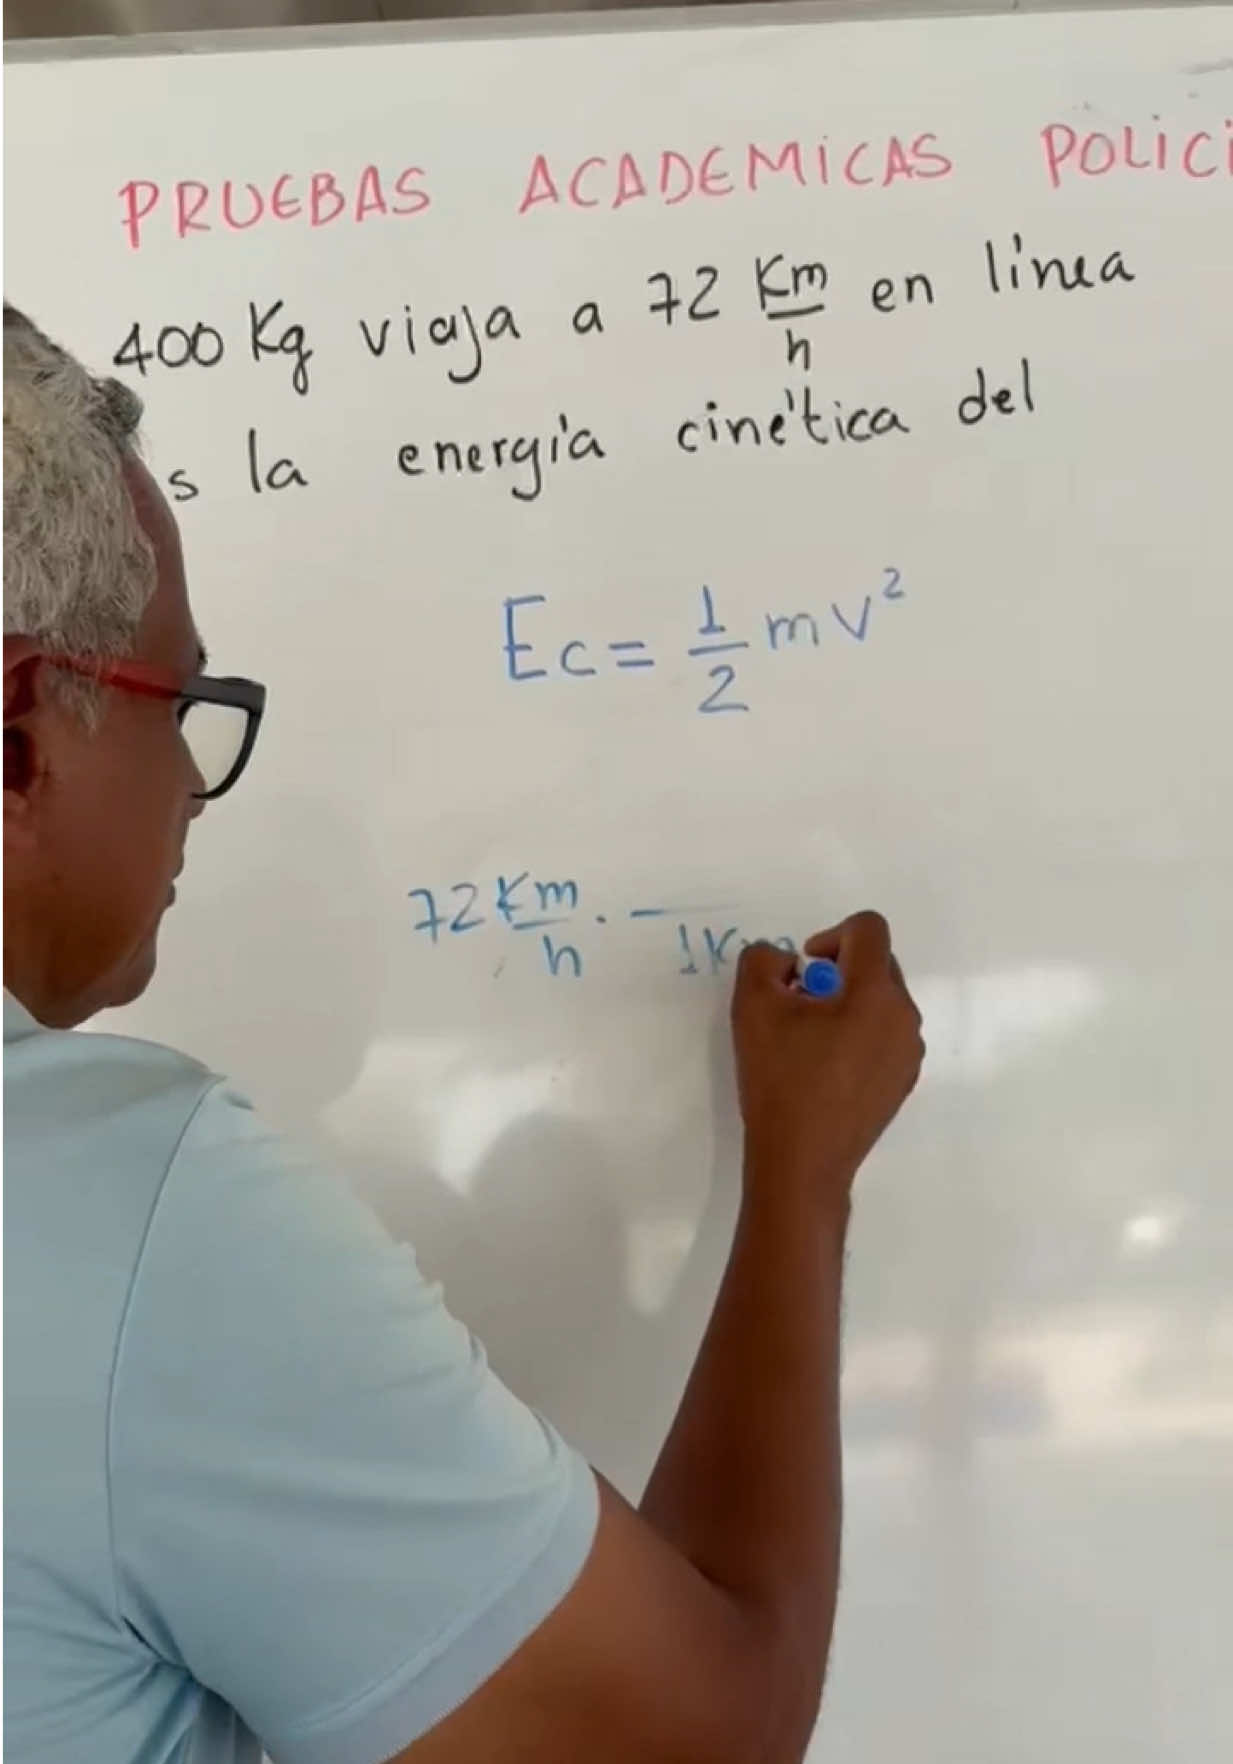 PRUEBAS ACADEMICAS POLICI
400 Kg viaja a 72 Km/h en línea
s la energía cinética del
Ec = 1/2 mv²
72 Km/h . — 1K